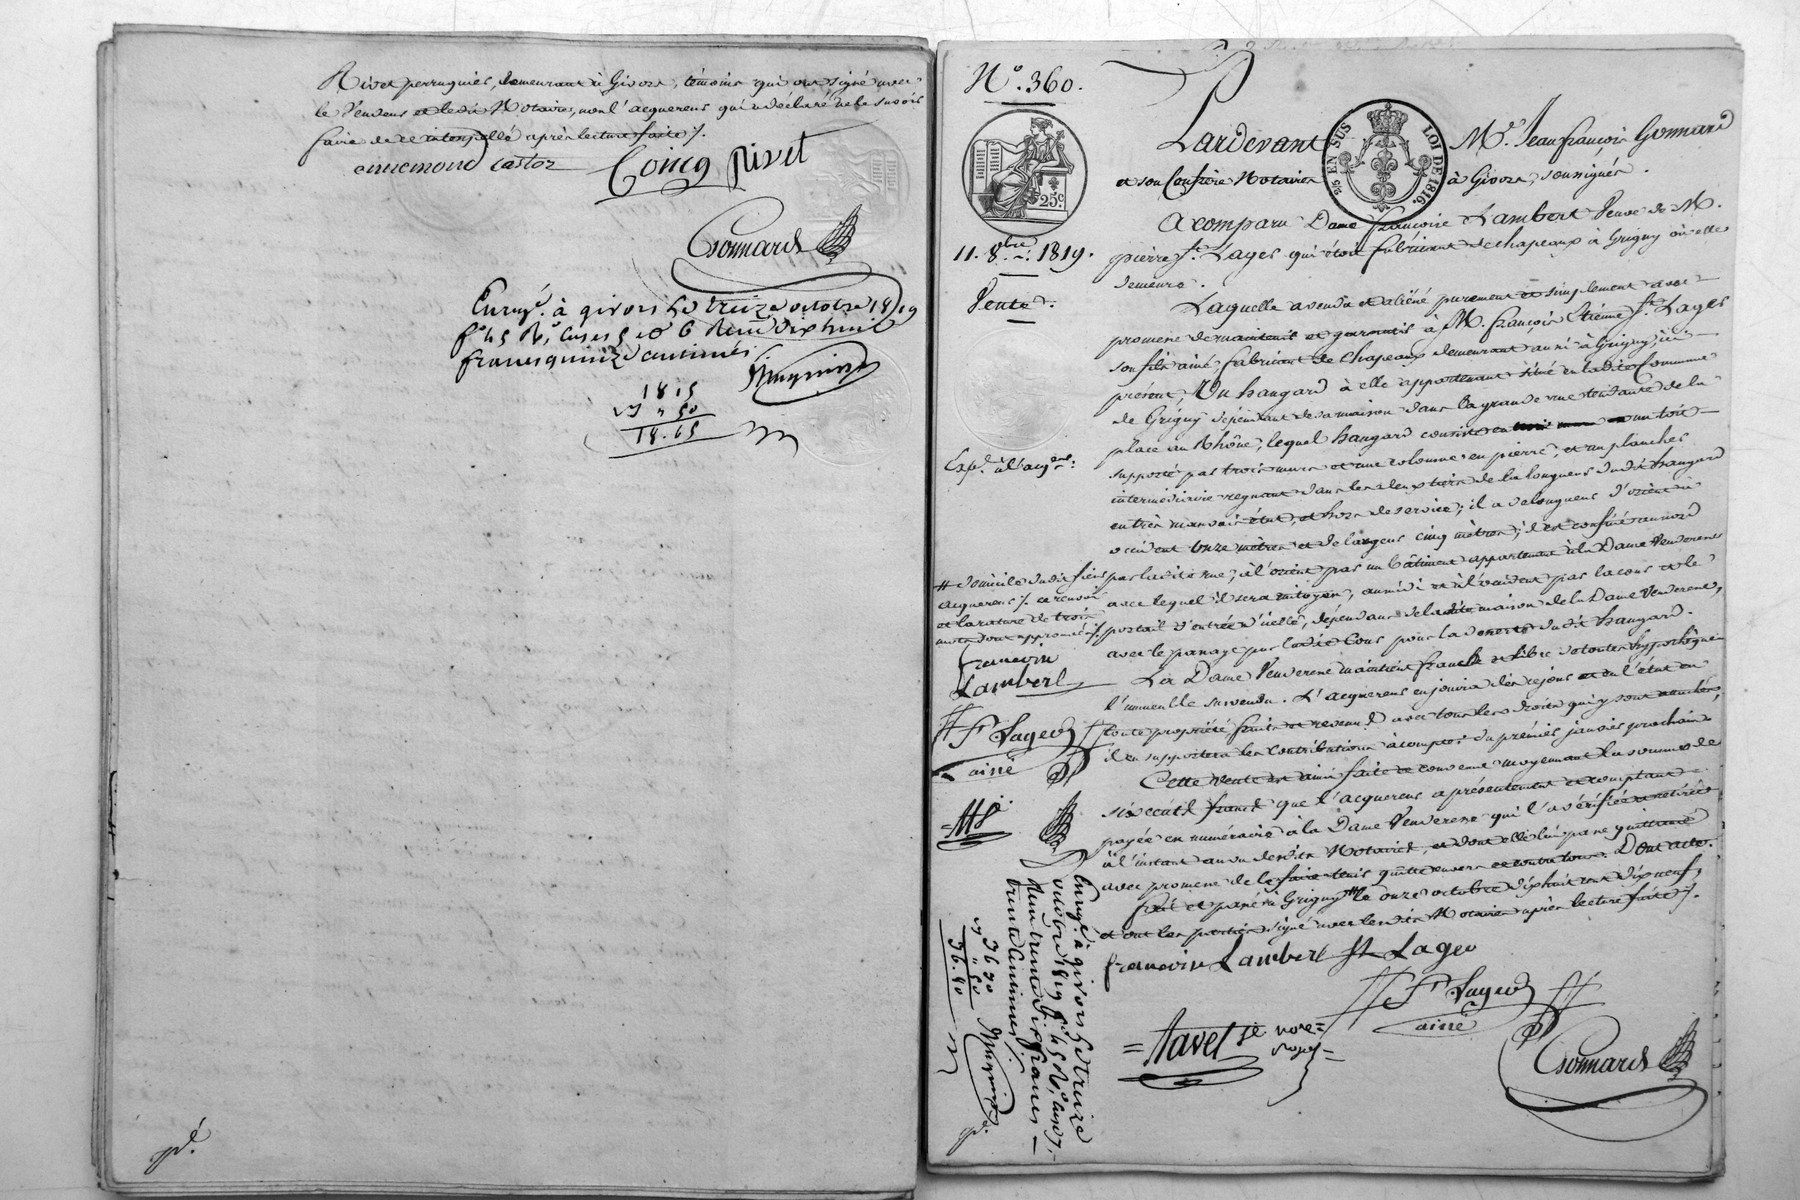 Rivet perruquier, demeurant à Givors, témoins qui ont signé avec
le Vendeur et lesdits Notaires, non l'acquereur qui a déclaré ne le savoir
faire de ce interpellé après lecture faite ./.
annemond castor Coing Rivet
Gonnard
Enreg.é à givors le treize octobre 1819
f.o 45 R.o, Cases 5 et 6 Reçu dix huit
francs quinze centimes
18 15
" 50
18.65
N.o 360.
25c
25/c EN SUS
LOI DE 1816.
Pardevant M.e Jean françois Gonnard
et son Confrère Notaires à Givors, soussignés.
A comparu Dame françoise Lambert Veuve de M.
pierre S.t Lager qui étoit fabricant de chapeaux à Grigny où elle
demeure.
11. 8.bre 1819.
Vente.
Laquelle a vendu et aliéné purement et simplement avec
promesse de maintenir et garantir à M. françois Etienne S.t Lager
son fils ainé, fabricant de chapeaux demeurant aussi à Grigny, ici
présent, Un hangard à elle appartenant situé en ladite Commune
de Grigny dépendant de sa maison dans la grande rue tendante de la
place au Rhône, lequel hangard consiste en un toit
Exp.é à l'acq.eur:
supporté par trois murs et une colonne en pierre, et un plancher
intermédiaire regnant dans les deux tiers de la longueur dudit hangard
en très mauvais état, et hors de service; il a de longueur d'orient à
occident onze mètres et de largeur cinq mètres; il est confiné au nord
par ladite rue, à l'orient par un bâtiment appartenant à la Dame Venderesse
avec lequel il sera mitoyen, au midi et à l'occident par la cour et le
portail d'entrée d'icelle, dépendans de ladite maison de la Dame Venderesse,
avec le passage par ladite Cour pour la desserte dudit hangard.
# domicile dudit sieur
acquereur ./. ce renvoi
et la rature de trois
mots sont approuvés ./.
francoise
Lambert
F S.t Lager
ainé
La Dame Venderesse maintient franc et libre de toutes hypothèques
l'immeuble sus vendu. L'acquereur en jouira dès ce jour et en l'état en
toute propriété, fruits et revenus avec tous les droits qui y sont attachés,
il en supportera les contributions à compter du premier janvier prochain
Cette vente est ainsi faite et convenue moyennant la somme de
six cents francs que l'acquereur a présentement et comptant
payée en numéraire à la Dame Venderesse qui l'a vérifiée et retirée
à l'instant au vu desdits Notaires, et dont elle lui passe quittance
avec promesse de le faire tenir quitte envers et contre tous. Dont acte.
fait et passé à Grigny # le onze octobre dix huit cent dix neuf,
et ont les parties signé avec lesdits Notaires après lecture faite ./.
francoise Lambert S.t Lager
F S.t Lager
ainé
Favel
Gonnard
Enreg.é à givors le treize
octobre 1819 f.o 45 R.o, case 7,
Reçu trente six francs
trente centimes
36 30
" 50
36.80